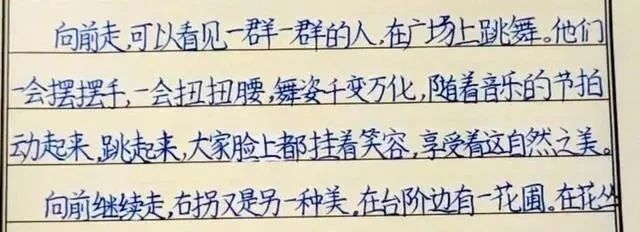 向前走,可以看见一群一群的人,在广场上跳舞。他们
一会摆摆手,一会扭扭腰,舞姿千变万化,随着音乐的节拍
动起来,跳起来,大家脸上都挂着笑容,享受着这自然之美。
向前继续走,右拐又是另一种美。在台阶边有一花圃。在花丛